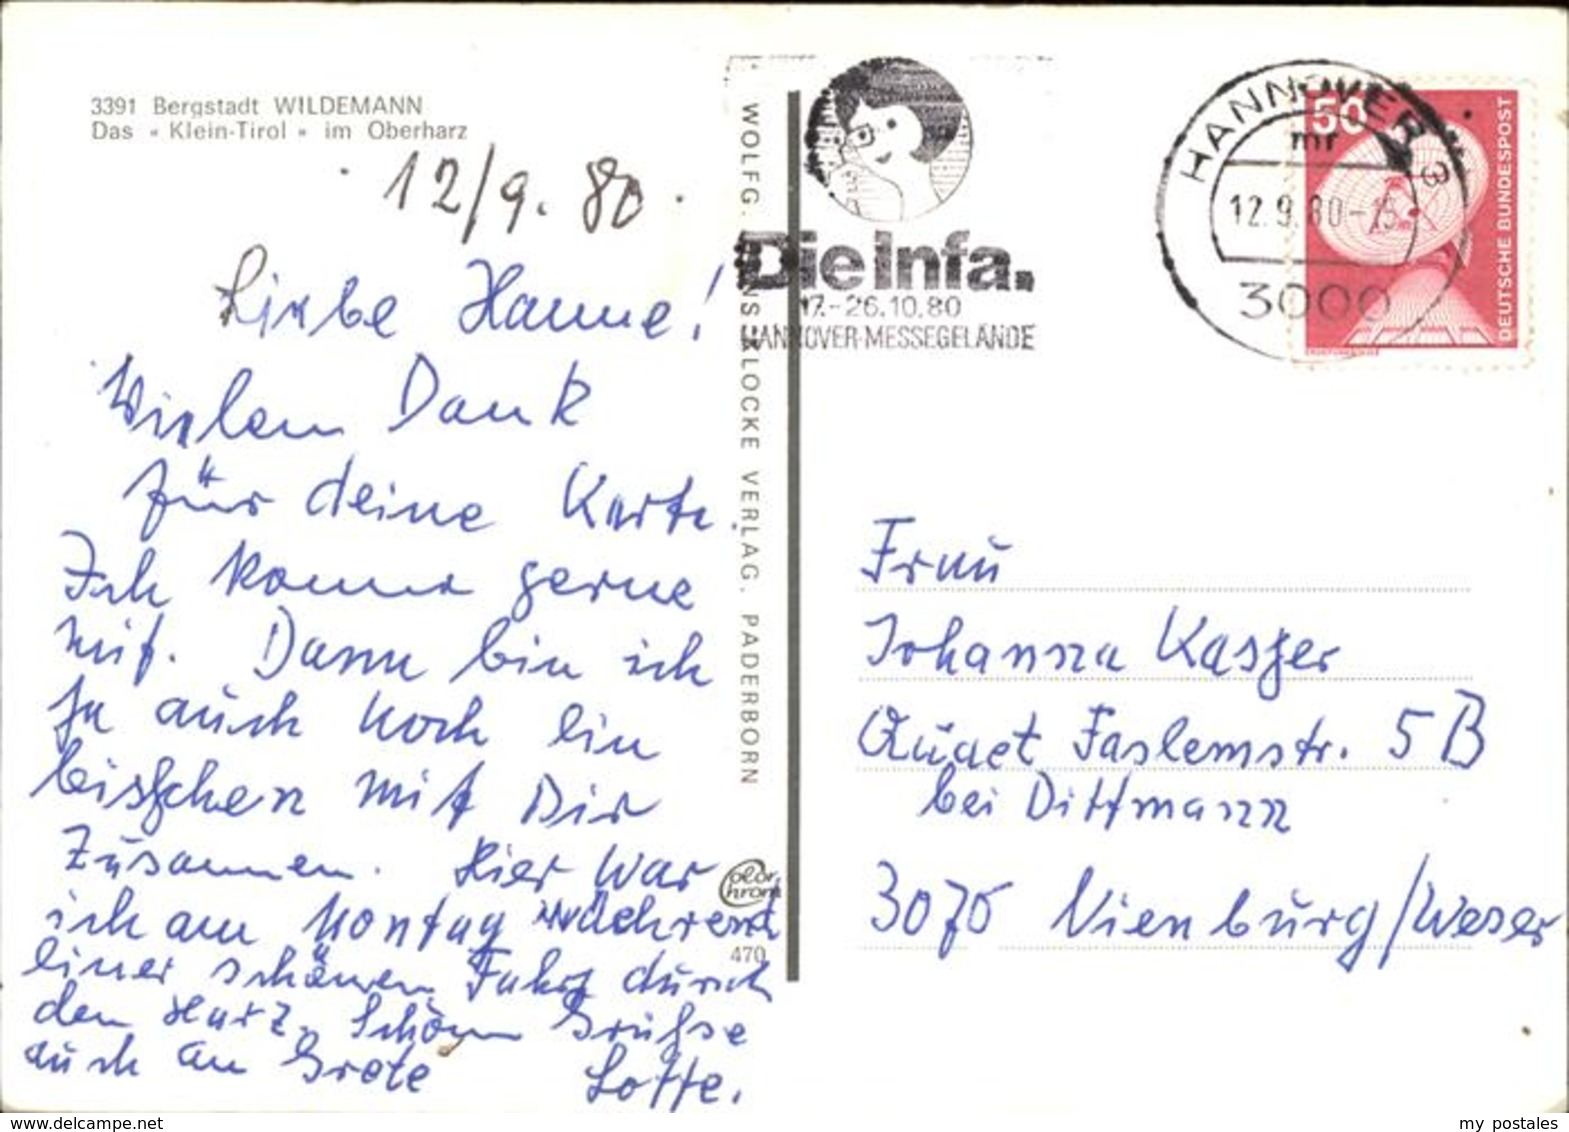 3391 Bergstadt WILDEMANN
Das « Klein-Tirol » im Oberharz
12/9. 80
Liebe Hanne!
Vielen Dank
für deine Karte.
Ich komme gerne
mit. Dann bin ich
ja auch noch ein
bisschen mit Dir
Zusammen. Hier war
ich am Montag während
einer schönen Fahrt durch
den Harz. Schöne Grüße
auch an Grete Lotte.
WOLFG. KLOCKE VERLAG. PADERBORN
Color
Chrom
470
Die Infa.
17.-26.10.80
HANNOVER-MESSEGELÄNDE
HANNOVER 3
mr
12.9.80-15
3000
50
DEUTSCHE BUNDESPOST
Frau
Johanna Kasper
Faslemstr. 5B
bei Dittmann
3070 Nienburg/Weser
my postales